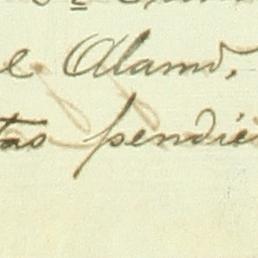 e Alamo,
tas pendie